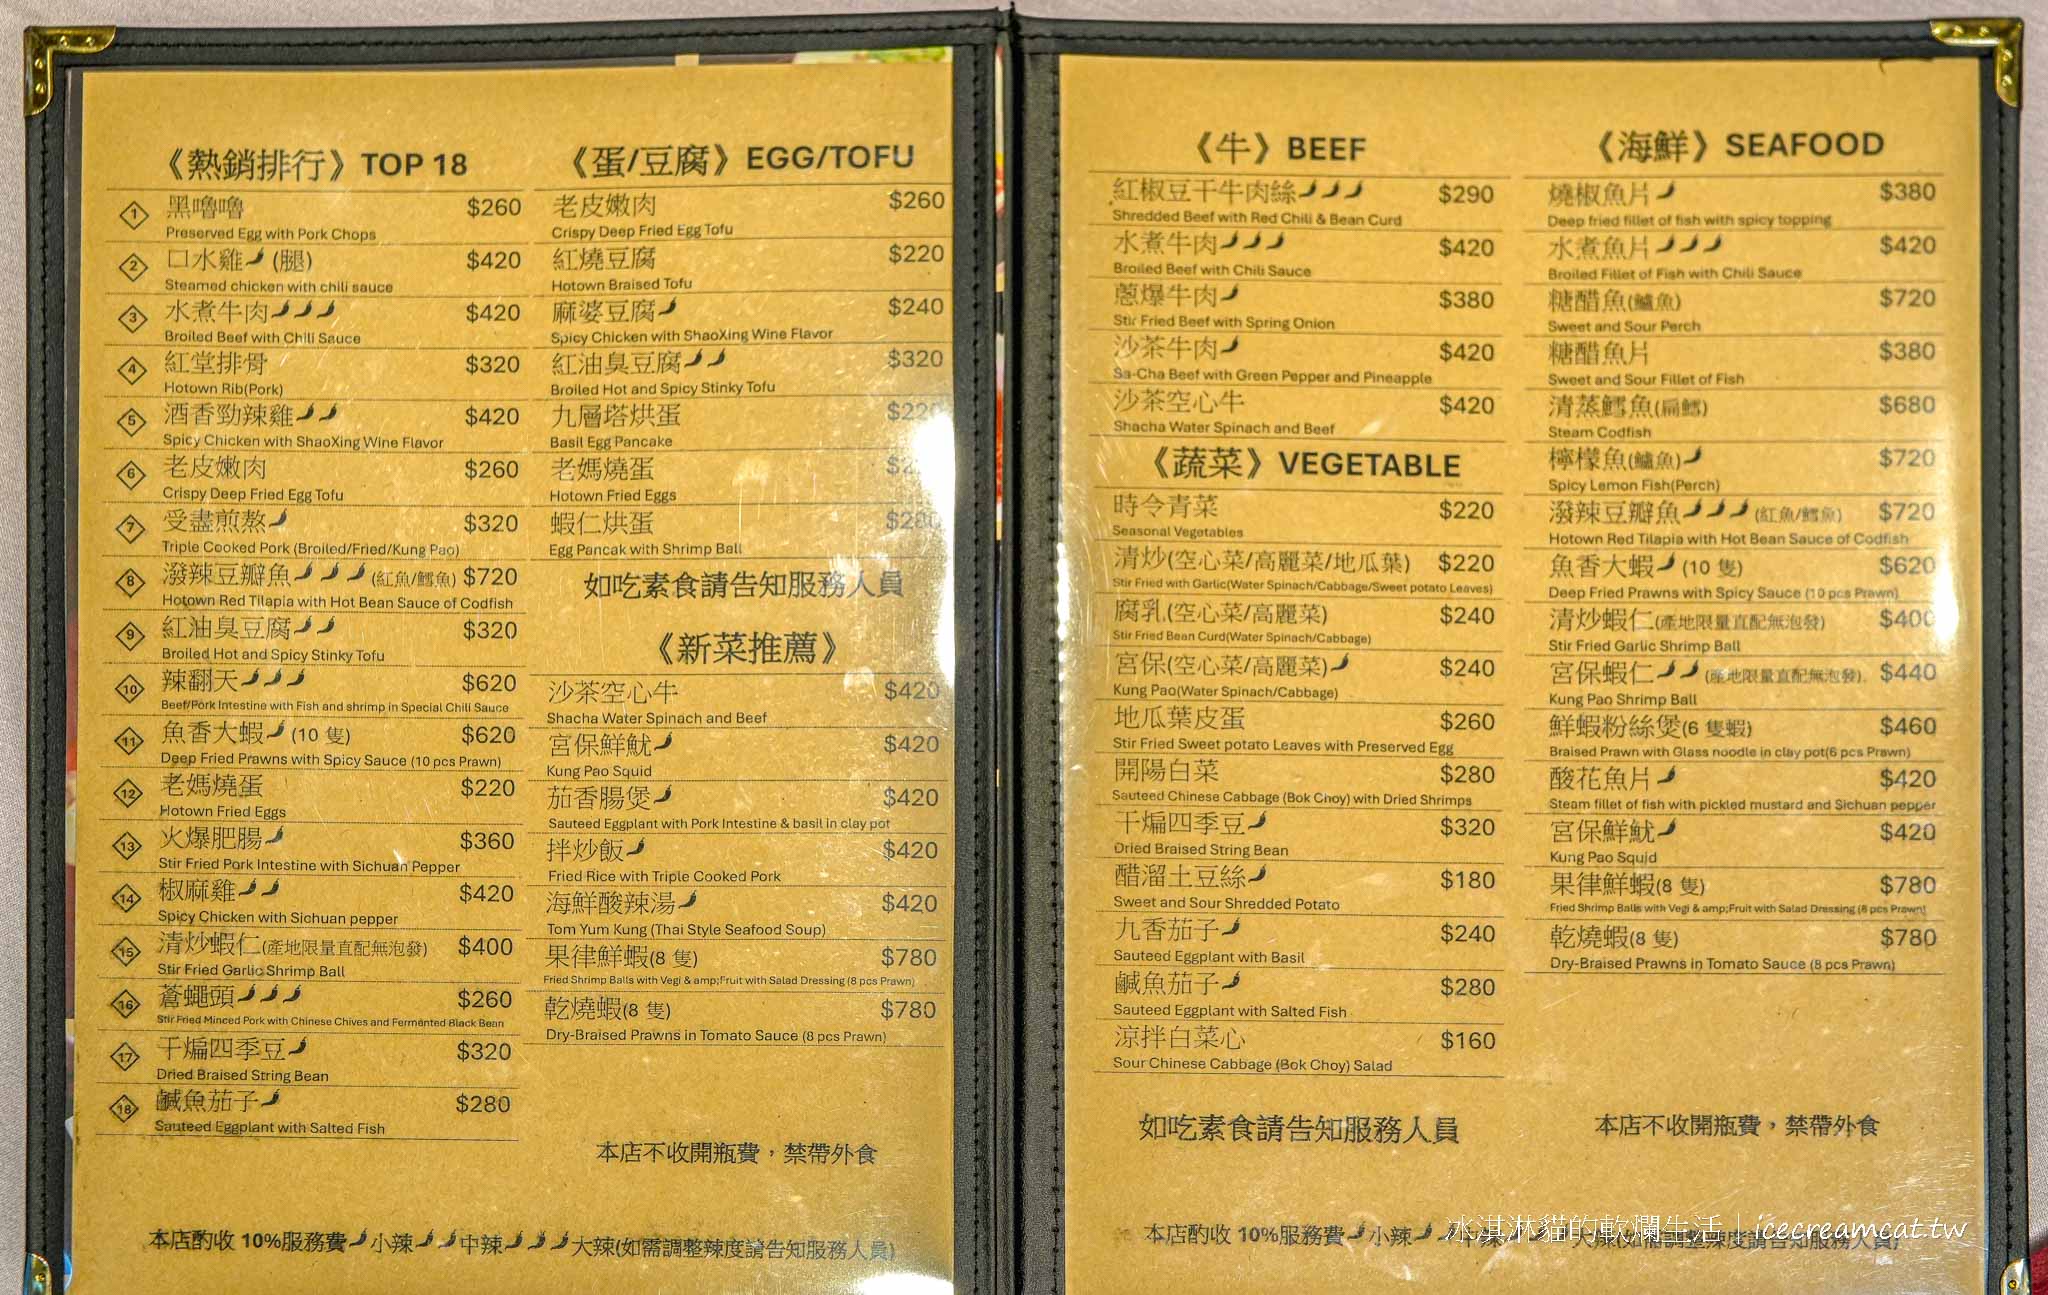 《熱銷排行》TOP 18
1 黑嚕嚕 $260
Preserved Egg with Pork Chops
2 口水雞 (腿) $420
Steamed chicken with chili sauce
3 水煮牛肉 $420
Broiled Beef with Chili Sauce
4 紅堂排骨 $320
Hotown Rib(Pork)
5 酒香勁辣雞 $420
Spicy Chicken with ShaoXing Wine Flavor
6 老皮嫩肉 $260
Crispy Deep Fried Egg Tofu
7 受盡煎熬 $320
Triple Cooked Pork (Broiled/Fried/Kung Pao)
8 潑辣豆瓣魚 (紅魚/鱈魚) $720
Hotown Red Tilapia with Hot Bean Sauce of Codfish
9 紅油臭豆腐 $320
Broiled Hot and Spicy Stinky Tofu
10 辣翻天 $620
Beef/Pork Intestine with Fish and shrimp in Special Chili Sauce
11 魚香大蝦 (10 隻) $620
Deep Fried Prawns with Spicy Sauce (10 pcs Prawn)
12 老媽燒蛋 $220
Hotown Fried Eggs
13 火爆肥腸 $360
Stir Fried Pork Intestine with Sichuan Pepper
14 椒麻雞 $420
Spicy Chicken with Sichuan pepper
15 清炒蝦仁(產地限量直配無泡發) $400
Stir Fried Garlic Shrimp Ball
16 蒼蠅頭 $260
Stir Fried Minced Pork with Chinese Chives and Fermented Black Bean
17 干煸四季豆 $320
Dried Braised String Bean
18 鹹魚茄子 $280
Sauteed Eggplant with Salted Fish
《蛋/豆腐》EGG/TOFU
老皮嫩肉 $260
Crispy Deep Fried Egg Tofu
紅燒豆腐 $220
Hotown Braised Tofu
麻婆豆腐 $240
Spicy Chicken with ShaoXing Wine Flavor
紅油臭豆腐 $320
Broiled Hot and Spicy Stinky Tofu
九層塔烘蛋 $220
Basil Egg Pancake
老媽燒蛋
Hotown Fried Eggs
蝦仁烘蛋 $280
Egg Pancak with Shrimp Ball
如吃素食請告知服務人員
《新菜推薦》
沙茶空心牛 $420
Shacha Water Spinach and Beef
宮保鮮魷 $420
Kung Pao Squid
茄香腸煲 $420
Sauteed Eggplant with Pork Intestine & basil in clay pot
拌炒飯 $420
Fried Rice with Triple Cooked Pork
海鮮酸辣湯 $420
Tom Yum Kung (Thai Style Seafood Soup)
果律鮮蝦(8 隻) $780
Fried Shrimp Balls with Vegi & amp;Fruit with Salad Dressing (8 pcs Prawn)
乾燒蝦(8 隻) $780
Dry-Braised Prawns in Tomato Sauce (8 pcs Prawn)
本店不收開瓶費，禁帶外食
本店酌收 10%服務費 小辣 中辣 大辣(如需調整辣度請告知服務人員)
《牛》BEEF
紅椒豆干牛肉絲 $290
Shredded Beef with Red Chili & Bean Curd
水煮牛肉 $420
Broiled Beef with Chili Sauce
蔥爆牛肉 $380
Stir Fried Beef with Spring Onion
沙茶牛肉 $420
Sa-Cha Beef with Green Pepper and Pineapple
沙茶空心牛 $420
Shacha Water Spinach and Beef
《蔬菜》VEGETABLE
時令青菜 $220
Seasonal Vegetables
清炒(空心菜/高麗菜/地瓜葉) $220
Stir Fried with Garlic(Water Spinach/Cabbage/Sweet potato Leaves)
腐乳(空心菜/高麗菜) $240
Stir Fried Bean Curd(Water Spinach/Cabbage)
宮保(空心菜/高麗菜) $240
Kung Pao(Water Spinach/Cabbage)
地瓜葉皮蛋 $260
Stir Fried Sweet potato Leaves with Preserved Egg
開陽白菜 $280
Sauteed Chinese Cabbage (Bok Choy) with Dried Shrimps
干煸四季豆 $320
Dried Braised String Bean
醋溜土豆絲 $180
Sweet and Sour Shredded Potato
九香茄子 $240
Sauteed Eggplant with Basil
鹹魚茄子 $280
Sauteed Eggplant with Salted Fish
涼拌白菜心 $160
Sour Chinese Cabbage (Bok Choy) Salad
如吃素食請告知服務人員
《海鮮》SEAFOOD
燒椒魚片 $380
Deep fried fillet of fish with spicy topping
水煮魚片 $420
Broiled Fillet of Fish with Chili Sauce
糖醋魚(鱸魚) $720
Sweet and Sour Perch
糖醋魚片 $380
Sweet and Sour Fillet of Fish
清蒸鱈魚(扁鱈) $680
Steam Codfish
檸檬魚(鱸魚) $720
Spicy Lemon Fish(Perch)
潑辣豆瓣魚 (紅魚/鱈魚) $720
Hotown Red Tilapia with Hot Bean Sauce of Codfish
魚香大蝦 (10 隻) $620
Deep Fried Prawns with Spicy Sauce (10 pcs Prawn)
清炒蝦仁(產地限量直配無泡發) $400
Stir Fried Garlic Shrimp Ball
宮保蝦仁 (產地限量直配無泡發) $440
Kung Pao Shrimp Ball
鮮蝦粉絲煲(6 隻蝦) $460
Braised Prawn with Glass noodle in clay pot(6 pcs Prawn)
酸花魚片 $420
Steam fillet of fish with pickled mustard and Sichuan pepper
宮保鮮魷 $420
Kung Pao Squid
果律鮮蝦(8 隻) $780
Fried Shrimp Balls with Vegi & amp;Fruit with Salad Dressing (8 pcs Prawn)
乾燒蝦(8 隻) $780
Dry-Braised Prawns in Tomato Sauce (8 pcs Prawn)
本店不收開瓶費，禁帶外食
本店酌收 10%服務費 小辣 中辣 大辣(如需調整辣度請告知服務人員)
冰淇淋貓的軟爛生活｜icecreamcat.tw